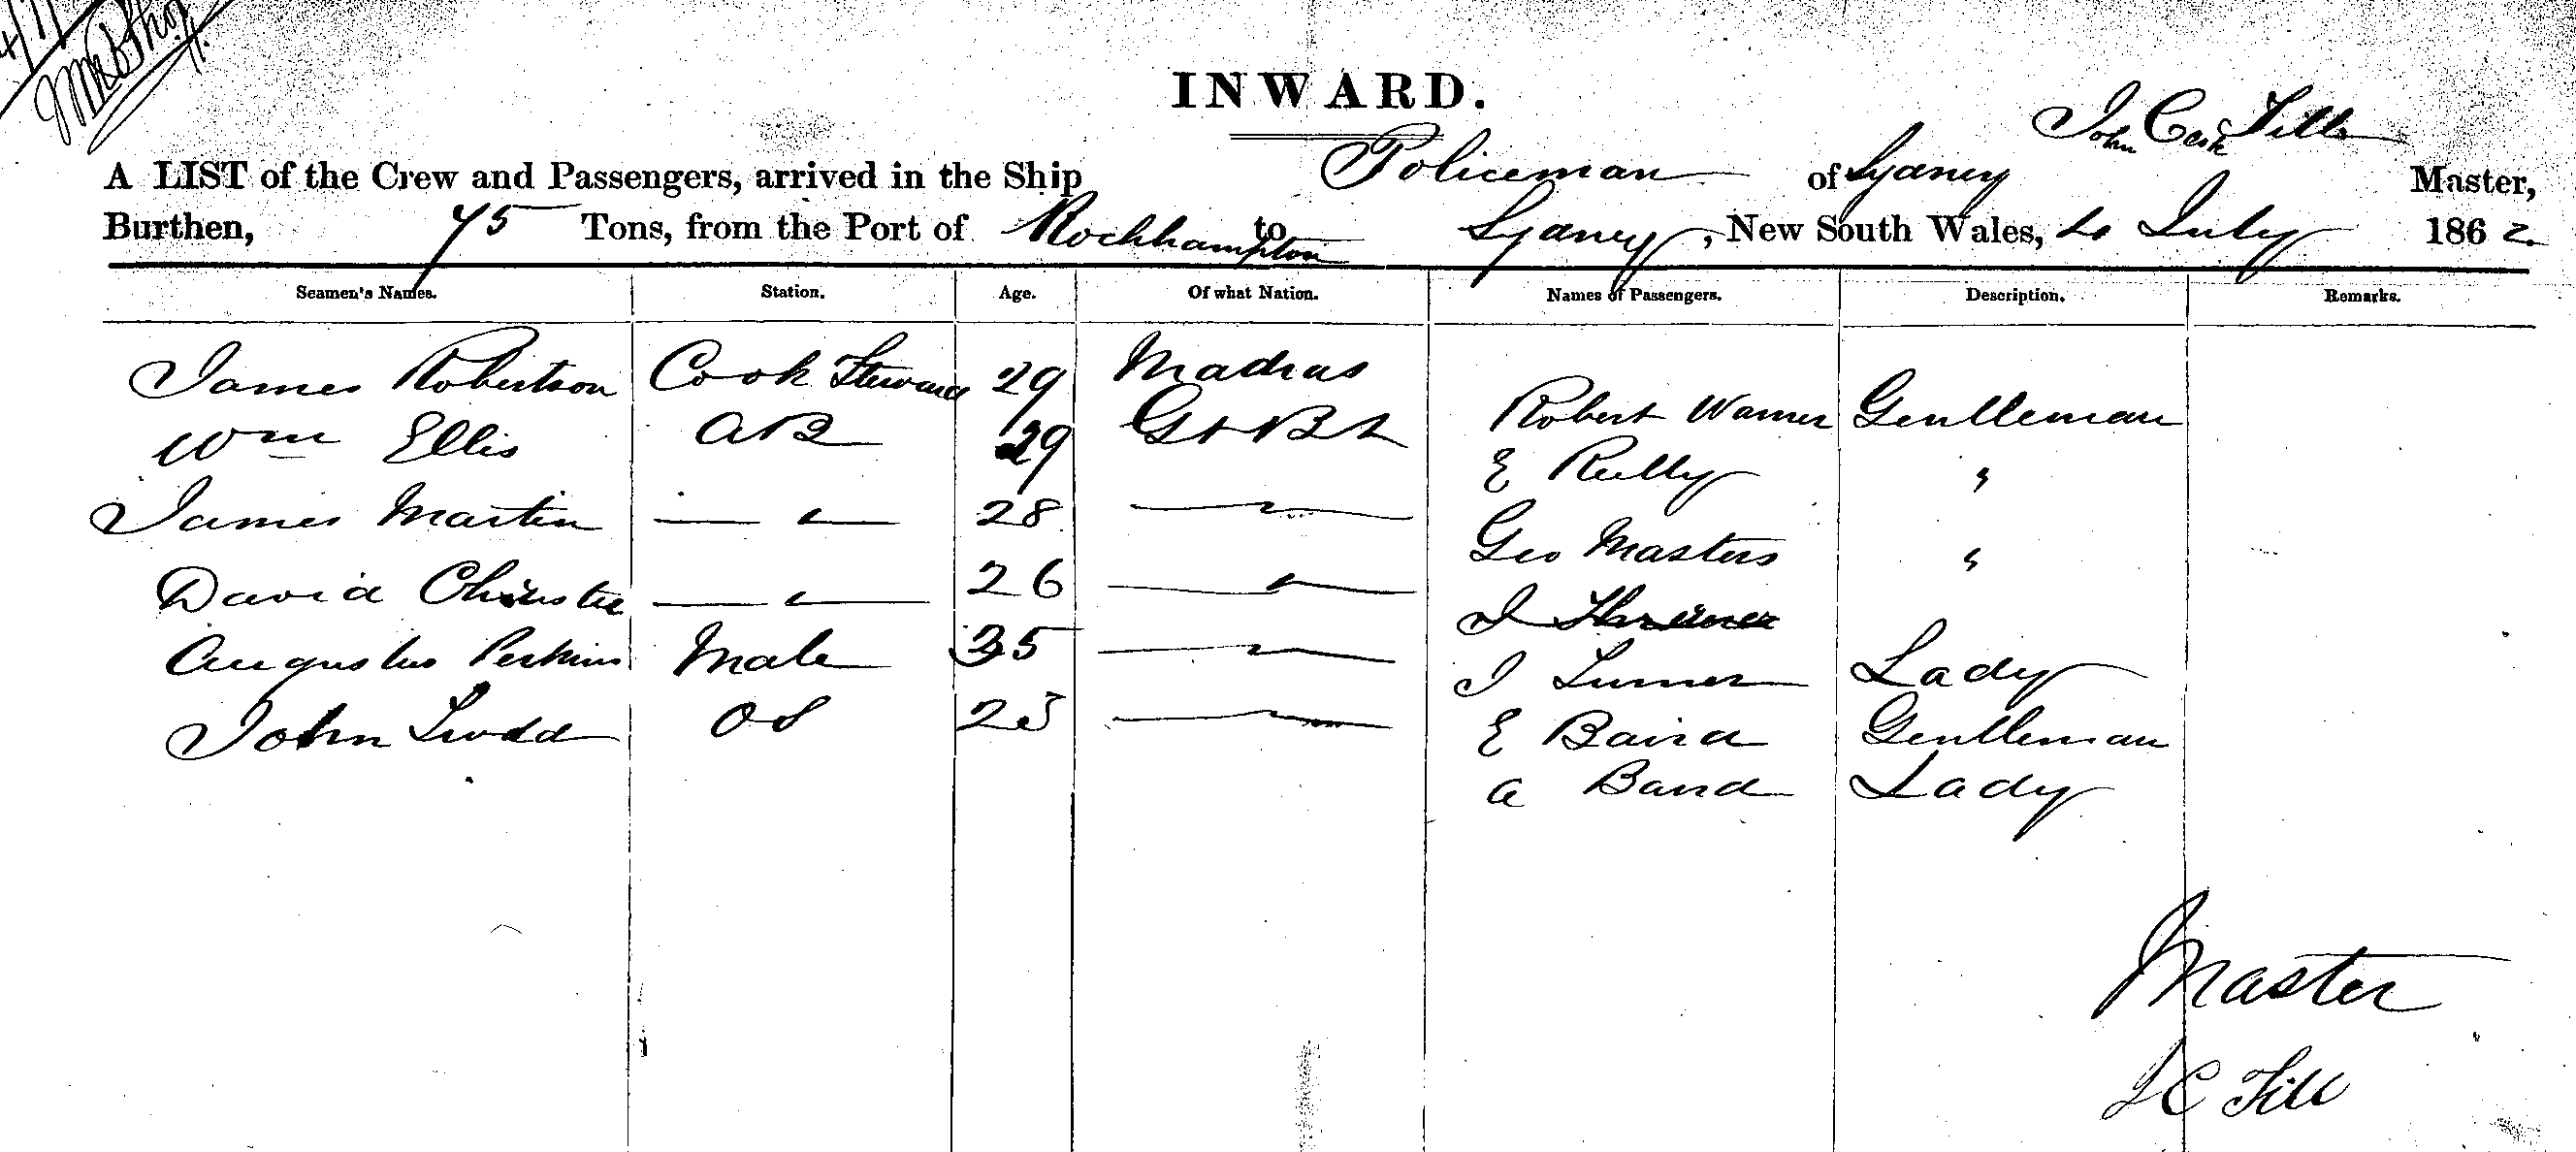 INWARD.
John Cask Till
A LIST of the Crew and Passengers, arrived in the Ship Policeman of Sydney Master,
Burthen, 75 Tons, from the Port of Rockhampton to Sydney, New South Wales, 4 July 1862
Seamen's Names. Station. Age. Of what Nation. Names of Passengers. Description. Remarks.
James Robertson Cook Steward 29 Madras
Robert Warner Gentleman
Wm Ellis AB 29 Gt Bt
E Reilly "
James Martin — " — 28 — " —
Geo Masters "
David Christie — " — 26 — " —
J
Augustus Perkins Mate 35 — " —
J Turner Lady
John Ludd OS 23 — " —
E Baird Gentleman
A Baird Lady
Master
J C Till